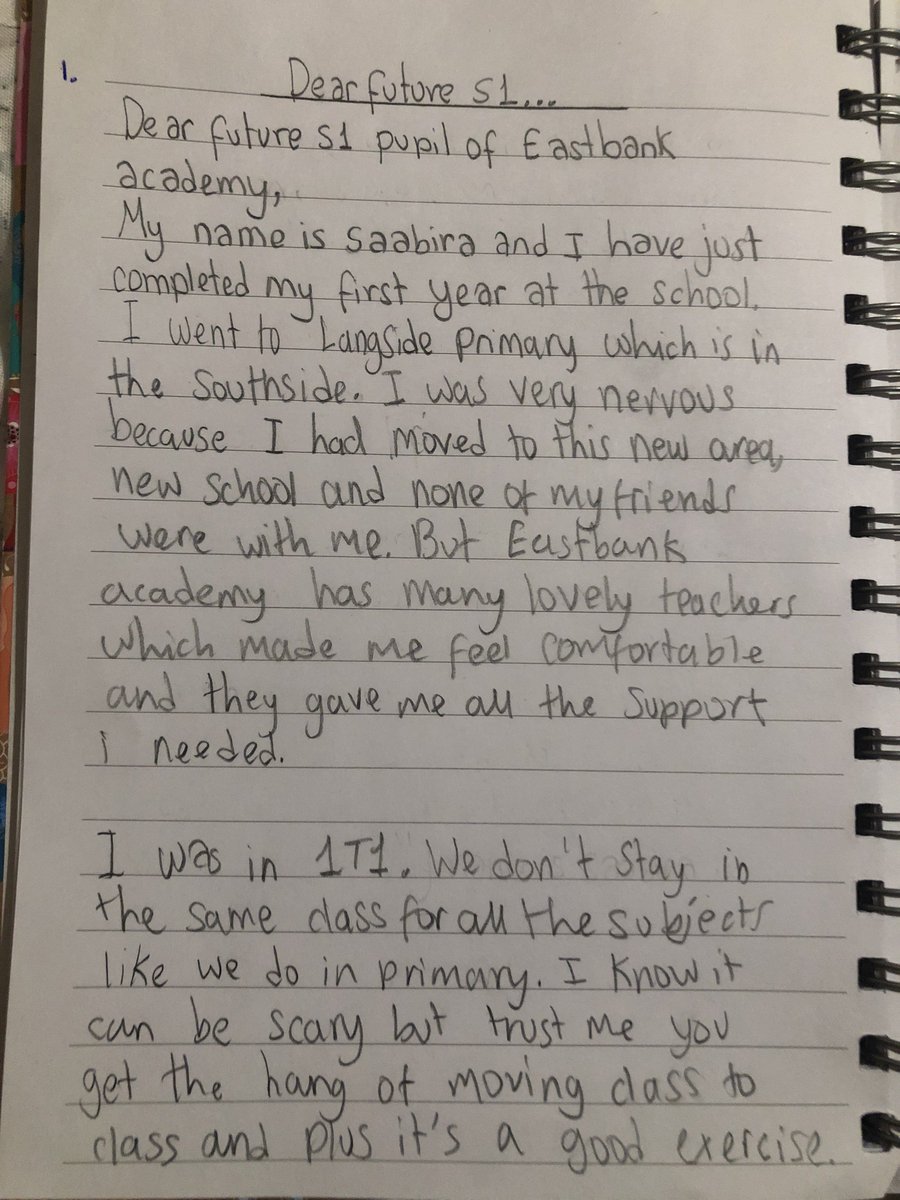 1.
Dear future S1...
Dear future S1 pupil of Eastbank
academy,
My name is Saabira and I have just
completed my first year at the school.
I went to Langside primary which is in
the Southside. I was very nervous
because I had moved to this new area,
new school and none of my friends
were with me. But Eastbank
academy has many lovely teachers
which made me feel comfortable
and they gave me all the support
i needed.
I was in 1T1. We don't stay in
the same class for all the subjects
like we do in primary. I know it
can be scary but trust me you
get the hang of moving class to
class and plus it's a good exercise.